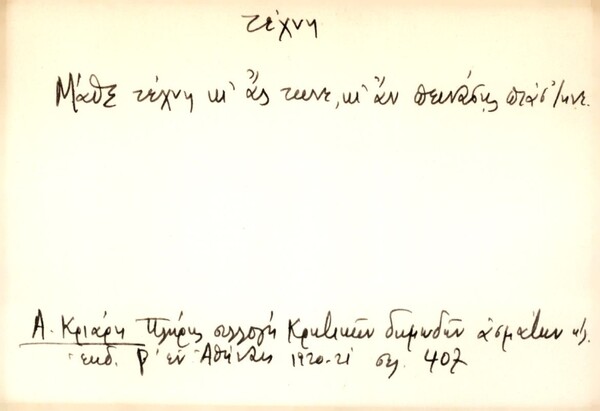 τέχνη
Μάθε τέχνη κι' ἄς τηνε, κι' ἄν πεινάσῃς πιάσ' τηνε.
Α. Κριάρη Πλήρης συλλογή Κρητικῶν δημωδῶν ᾀσμάτων κ.λ.
ἐκδ. β' ἐν Ἀθήναις 1920-21 σελ. 407